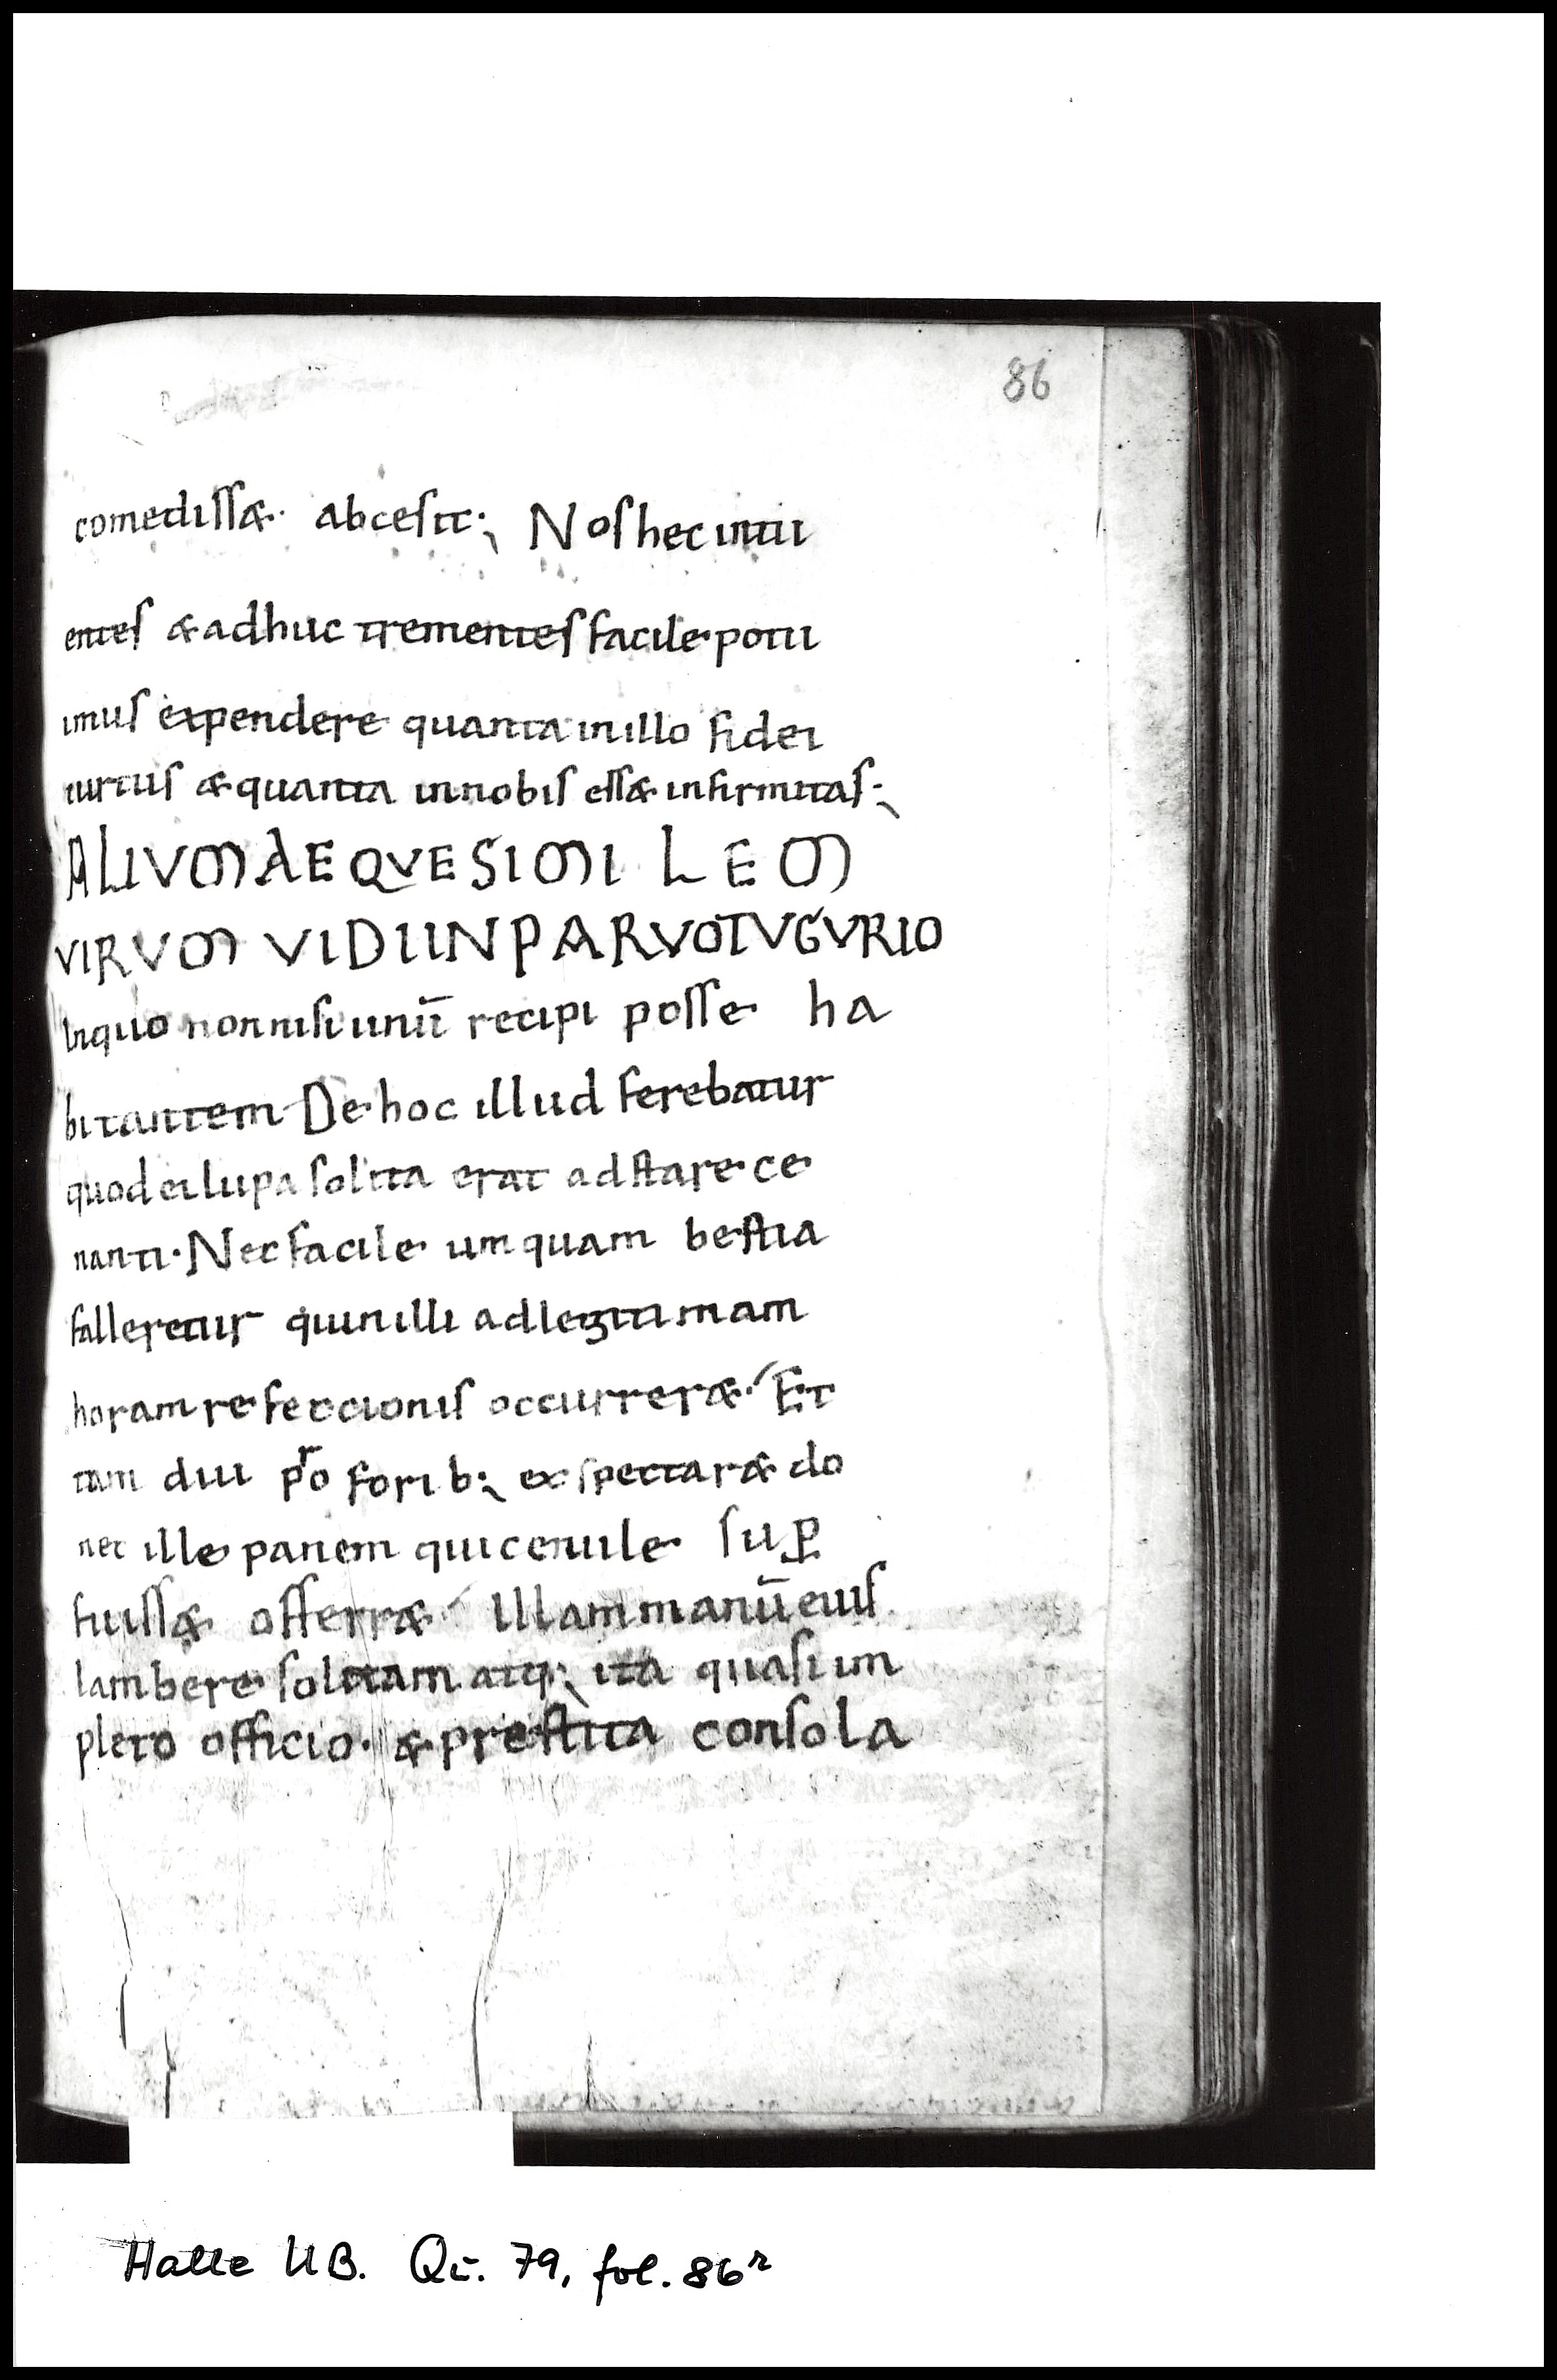 86
comediss&· abcesit·, Nos hec intu
entes & adhuc trementes facile potu
imus expendere quanta in illo fidei
uirtus & quanta in nobis ess& infirmitas·,
ALIVM AEQVE SIMILEM
VIRVM VIDI IN PARVO TVGVRIO
In quo non nisi unū recipi posse ha
bitantem De hoc illud ferebatur
quod ei lupa solita erat adstare ce
nanti· Nec facile umquam bestia
falleretur quin illi ad legitimam
horam refeccionis occurrer&· Et
tam diu pro forib; exspectar& do
nec ille panem qui cenule sup̱
fuiss& offerr& Illam manū eius
lambere solitam atq; ita quasi im
pleto officio· & prestita consola
Halle UB. Qu. 79, fol. 86r